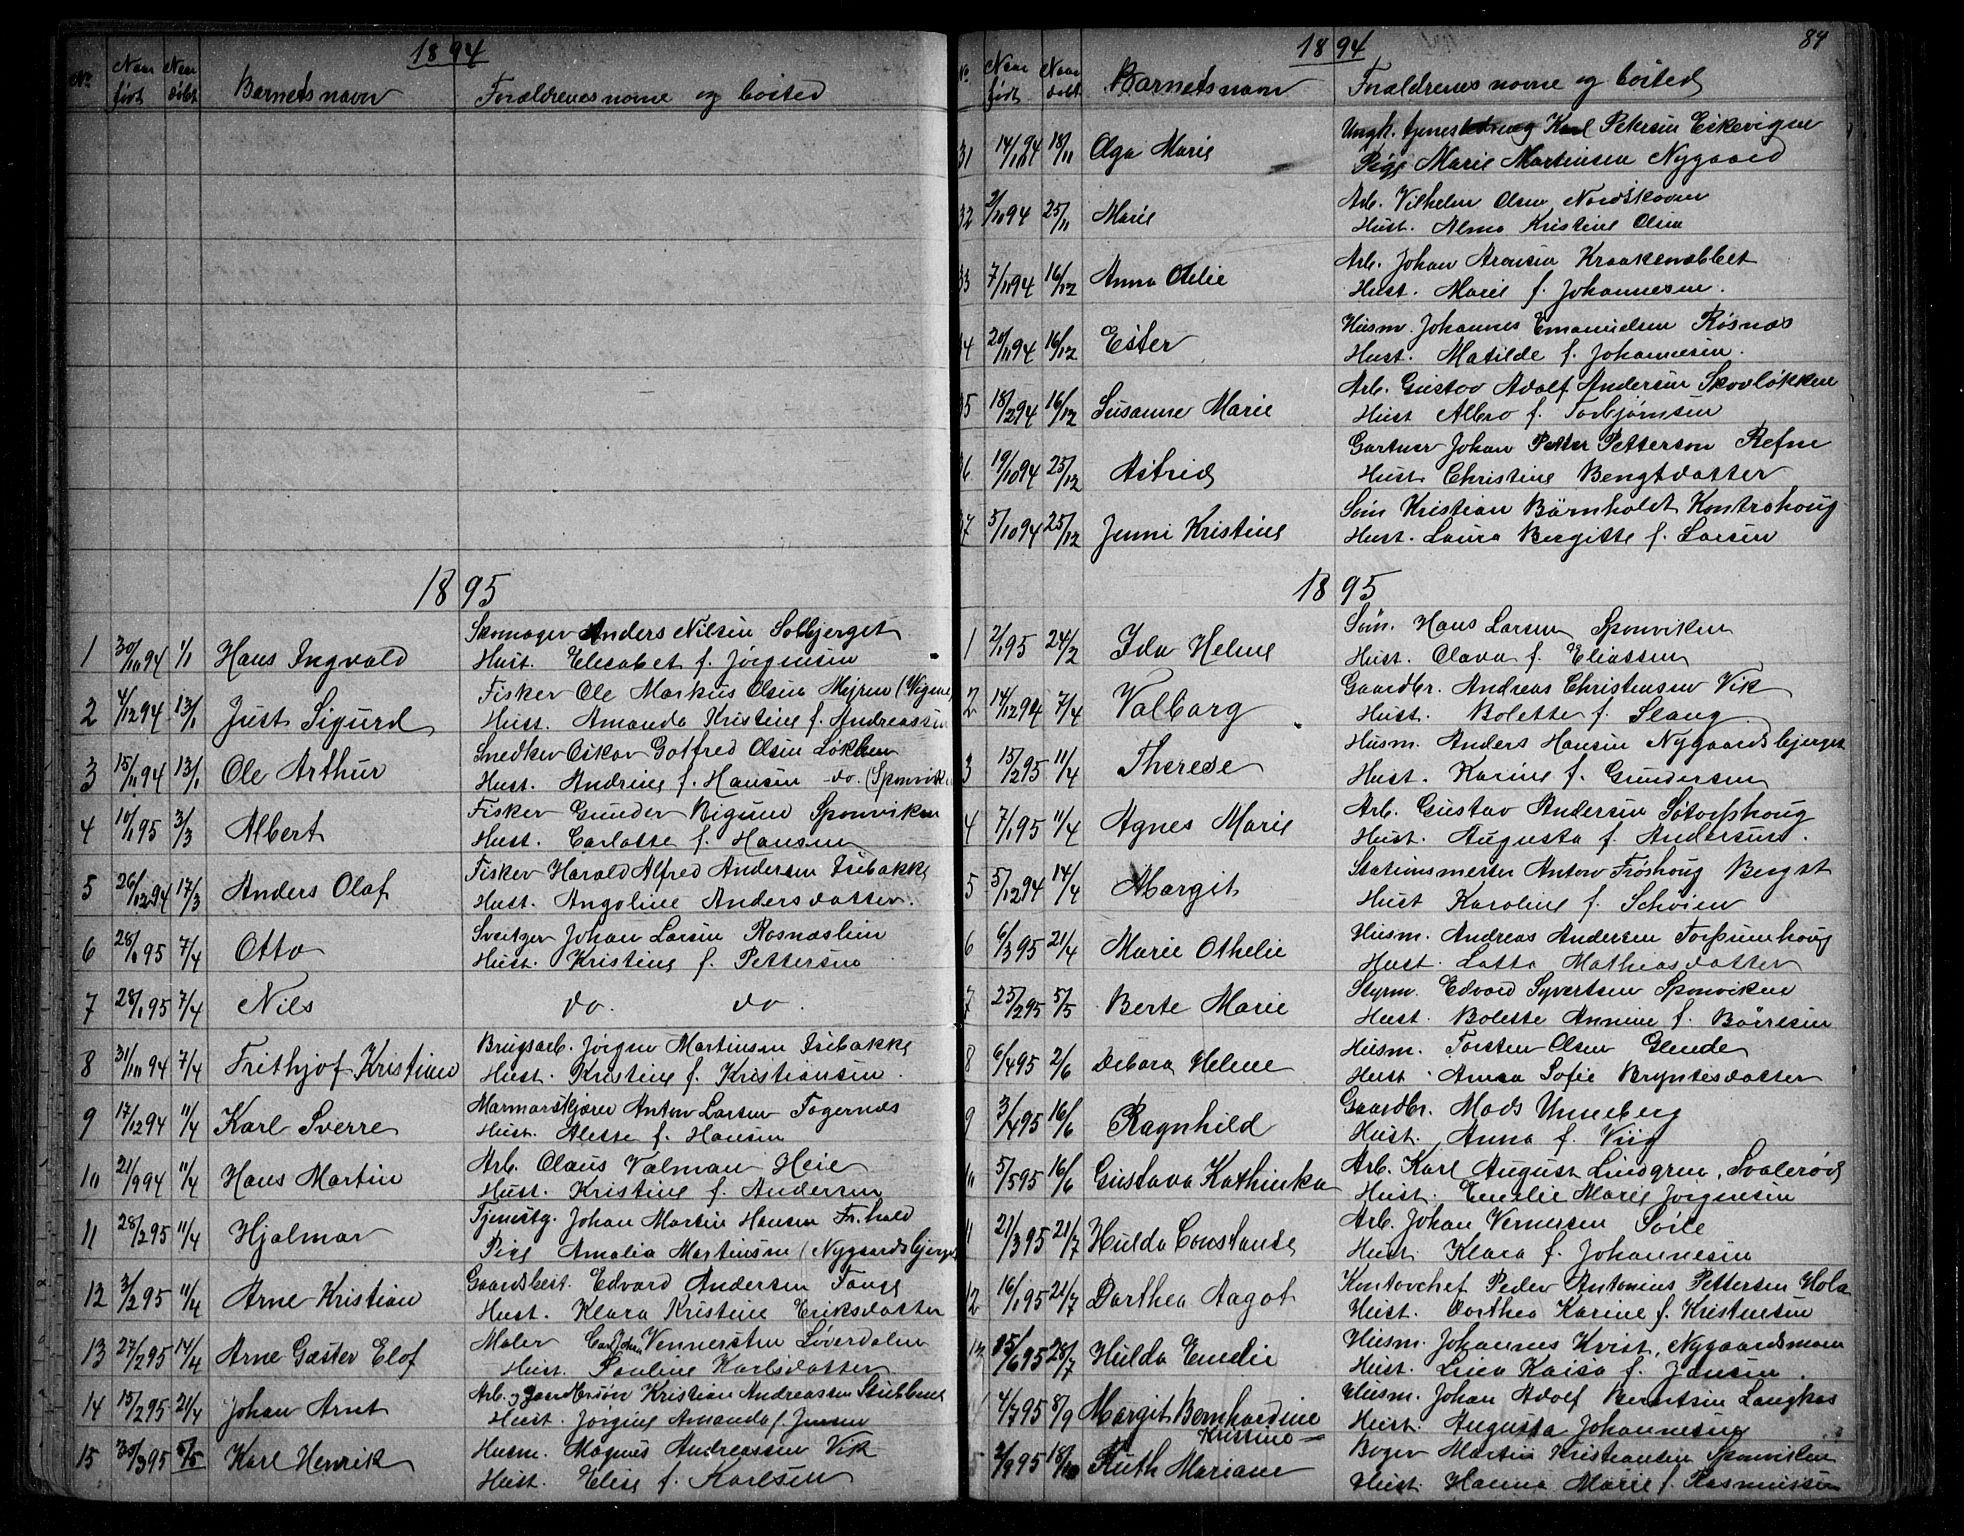 1894
No. Naar født Naar døbt Barnets navn Forældrenes navne og bosted
1895
1 30/10 94 1/1 Hans Ingvald Skomager Anders Nilsen Solbjerget
Hust. Elisabet f. Jørgensen
2 4/12 94 13/1 Just Sigurd Fisker Ole Markus Olsen Mejren (Vigene
Hust. Amanda Kristine f. Andreassen
3 15/11 94 13/1 Ole Arthur Snedker Oskar Gotfred Olsen Løkken
Hust. Andrine f. Hansen do. (Sponvik
4 10/1 95 3/3 Albert Fisker Gunder Sponviken
Hust. Carlotte f. Hansen
5 26/12 94 17/3 Anders Olaf Fisker Harald Alfred Andersen Isebakke
Hust. Angoline Andersdatter.
6 28/1 95 7/4 Otto Sveitzer Johan Larsen Røsnæslien
Hust. Kristine f. Pettersen
7 28/1 95 7/4 Nils do. do.
8 31/10 94 7/4 Frithjof Kristian Brugsarb. Jørgen Martinsen Isebakke
Hust. Kristine f. Kristiansen.
9 17/12 94 11/4 Karl Sverre Marmorskjærer Anton Larsen Fagernæs
Hust. Alette f. Hansen
10 21/9 94 11/4 Hans Martin Arb. Claus Valman Heie
Hust. Kristine f. Andersen
11 28/2 95 11/4 Hjalmar Tjenestg. Johan Martin Hansen Fr.hald
Pige Amalia Martinsen (Nygaardsbjerget
12 3/2 95 11/4 Arne Kristian Gaardsbest. Edvard Andersen Tange
Hust. Klara Kristine Eriksdatter
13 27/2 95 14/4 Arne Gæster Elof Maler Carl Johan Vennersten Løverdalen
Hust. Pauline Karlsdatter
14 15/2 95 21/4 Johan Arnt Arb. Kristian Andreassen Stubbene
Hust. Jørgine Amanda f. Jensen
15 30/3 95 5/5 Karl Henrik Husm. Magnus Andreassen Vik
Hust. Elise f. Karlsen
84
1894
No. Naar født Naar døbt Barnets navn Forældrenes navne og bosted
31 14/10 94 18/11 Olga Marie Ungk. tjenestedreng Karl Petersen Eskevigen
Pige Marie Martinsen Nygaard
32 2/11 94 25/11 Marie Arb. Vilhelm Olsen Nordskoven
Hust. Alma Kristine Olsen
33 7/11 94 16/12 Anna Otilie Arb. Johan Aronsen Kraakenæbbet
Hust. Marie f. Johannesen.
34 20/11 94 16/12 Ester Husm. Johannes Emanuelsen Røsnæs
Hust. Matilde f. Johannesen.
35 18/2 94 16/12 Susanne Marie Arb. Gustav Adolf Andersen Skovløkken
Hust Albro f. Torbjørnsen
36 19/10 94 25/12 Astrid Gartner Johan Petter Petterson Refne
Hust. Christine Bengtdatter
37 5/10 94 25/12 Jenni Kristine Søm Kristian Børnholdt Kontrahoug
Hust. Laura Bergitte f. Larsen
1895
1 2/1 95 24/2 Ida Helene Søm. Hans Larsen Sponviken
Hust. Olava f. Eliassen
2 14/12 94 7/4 Valborg Gaardbr. Andreas Christensen Vik
Hust. Bolette f. Slang.
3 15/2 95 11/4 Therese Husm. Anders Hansen Nygaardsbjerget
Hust. Karine f. Gundersen
4 7/1 95 11/4 Agnes Marie Arb. Gustav Andersen Søtorphoug
Hust. Augusta f. Andersen.
5 5/12 94 14/4 Margit Stationsmester Anton Frøshoug Berg st
Hust Karoline f. Schøien
6 6/3 95 21/4 Marie Othelie Husm. Andreas Andersen Torpumhoug
Hust. Lotta Mathiasdatter
7 25/2 95 5/5 Berte Marie Styrm. Edvard Syvertsen Sponviken
Hust. Bolette Annine f. Børresen
8 6/4 95 2/6 Debora Helene Husm. Torsten Olsen Glende
Hust. Anna Sofie Bryntesdatter
9 3/4 95 16/6 Ragnhild Gaardbr. Mads Unneberg
Hust. Anna f. Viig
10 5/5 95 16/6 Gustava Kathinka Arb. Karl August Lindgren, Svalerød
Hust. Emelie Marie Jørgensen
11 21/3 95 21/7 Hulda Constanse Arb. Johan Vernersen Sørle
Hust. Klara f. Johannesen
12 16/1 95 21/7 Dorthea Aagot Kontorchef Peder Antonius Pettersen Hola
Hust. Dorthea Karine f. Kristensen
13 25/6 95 28/7 Hulda Emelie Husm. Johannes Kvist, Nygaardsmoen
Hust. Lina Kaisa f. Jansen.
4/7 95 8/9 Margit Bernhardine Kristine Husm. Johan Adolf Berntsen Langkas
Hust. Augusta Johannesen
5 2/9 95 18/10 Ruth Mariane Bager Martin Kristiansen Sponviken
Hust. Hanna Marie f. Rasmussen